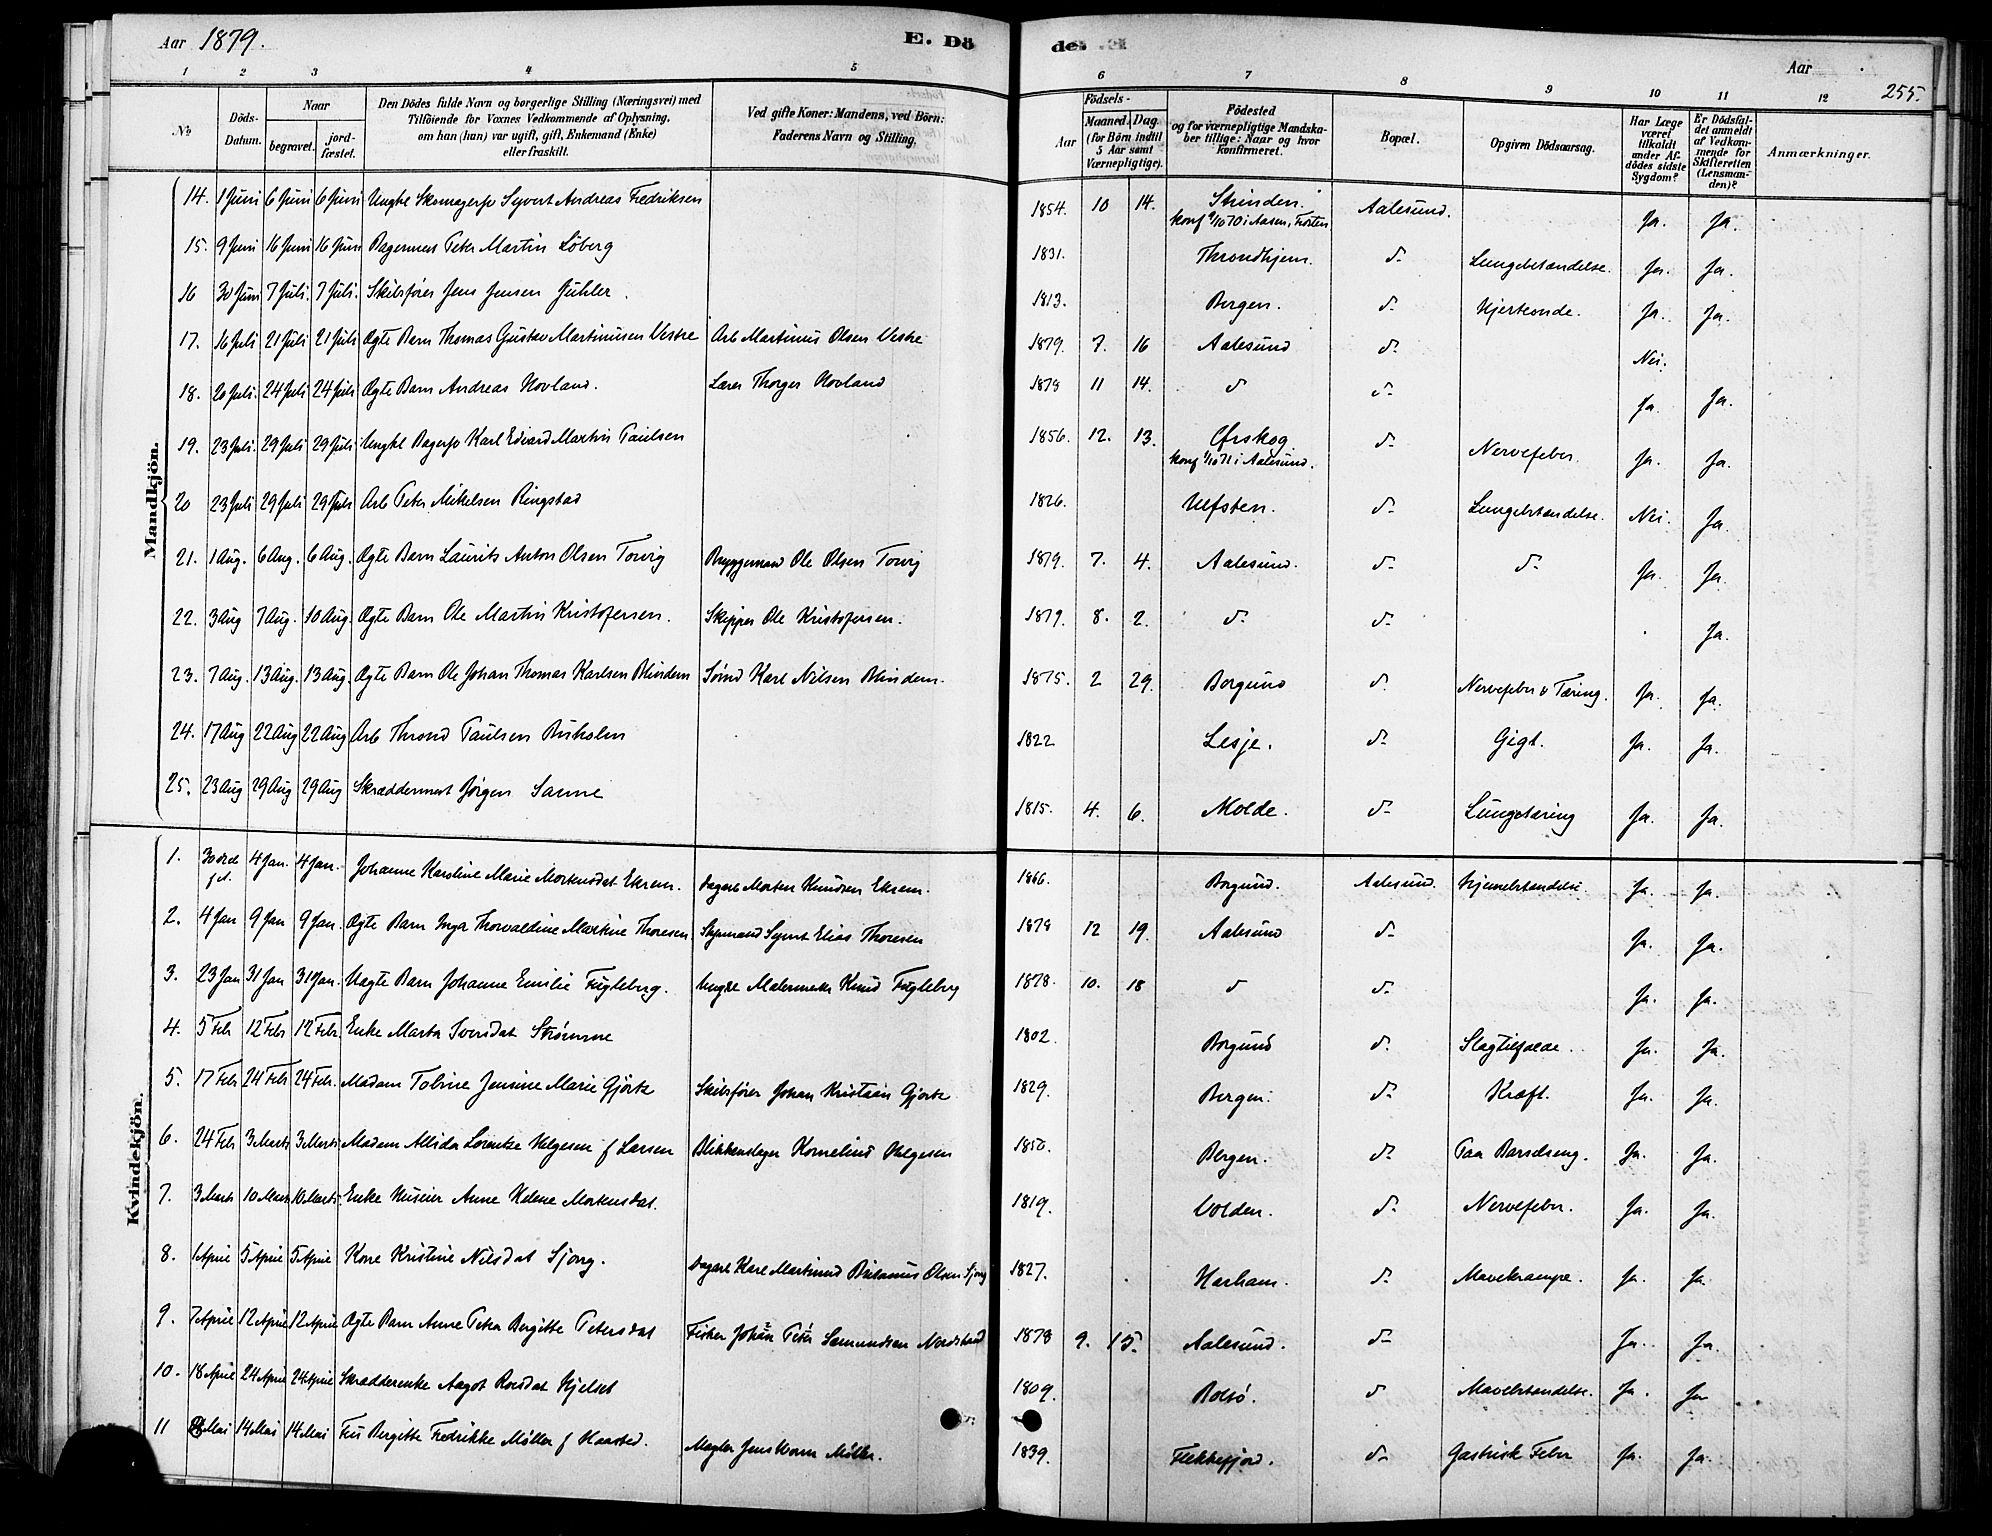 Aar 1879.
E. Dö
Aar
255.
1 2 3 4 5 6 7 8 9 10 11 12
No
Döds-Datum.
Naar
begravet.
jord-fæstet.
Den Dödes fulde Navn og borgerlige Stilling (Næringsvei) med
Tilföiende for Voxnes Vedkommende af Oplysning,
om han (hun) var ugift, gift, Enkemand (Enke)
eller fraskilt.
Ved gifte Koner: Mandens, ved Börn:
Faderens Navn og Stilling.
Födsels-
Aar
Maaned. Dag.
(for Börn indtil
5 Aar samt
Værnepligtige).
Födested
og for værnepligtige Mandska-
ber tillige: Naar og hvor
konfirmeret.
Bopæl.
Opgiven Dödsaarsag.
Har Læge
været
tilkaldt
under Af-
dödes sidste
Sygdom?
Er Dödsfal-
det anmeldt
af Vedkom-
mende for
Skifteretten
(Lensman-
den)?
Anmærkninger.
Mandkjön.
14. 1 Juni 6 Juni 6 Juni Ungkl Skomagersv Syvert Andreas Fredriksen 1854. 10 14. Strinden. konf 9/10 70 i Aasen, Frosten Aalesund. Ja. Ja.
15. 9 Juni 16 Juni 16 Juni Bagermest Peter Martin Löberg 1831. Throndhjem. d- Lungebetændelse. Ja. Ja.
16 30 Juni 7 Juli. 7 Juli. Skibsfører Jens Jensen Juhler. 1813. Bergen. d- Hjerteonde. Ja. Ja.
17. 16 Juli 21 Juli 21 Juli Ægte Barn Thomas Gustav Martinusen Vestre Arb Martinus Olsen Vestre 1879. 7. 16 Aalesund d- Nei.
18. 20 Juli. 24 Juli 24 Juli Ægte Barn Andreas Hovland. Lærer Thorger Hovland 1878 11 14. d d- Ja. Ja.
19. 23 Juli. 29 Juli 29 Juli Ungkl Bagersv Karl Edvard Martin Paulsen 1856. 12. 13. Ørskog konf 1/10 71 i Aalesund. d- Nervefeber. Ja. Ja.
20 23 Juli 29 Juli 29 Juli Arb Peter Mikelsen Ringstad 1826. Ulfsten. d- Lungebetændelse. Nei. Ja.
21. 1 Aug. 6 Aug. 6 Aug. Ægte Barn Laurits Anton Olsen Torvig Bryggemand Ole Olsen Torvig 1879. 7. 4. Aalesund. d- d- Ja. Ja.
22. 3 Aug 7 Aug. 10 Aug. Ægte Barn Ole Martin Kristofersen. Skipper Ole Kristofersen. 1879. 8. 2. d- d- Ja.
23. 7 Aug. 13 Aug. 13 Aug. Ægte Barn Ole Johan Thomas Karlsen Blindem Karl Nilsen Blindem. 1875. 2 29. Borgund d. Nervefeber & Tæring. Ja. Ja.
24. 17 Aug 22 Aug 22 Aug Arb Thrond Paulsen Buholm 1822 Lesje. d- Gigt. Ja. Ja.
25. 23 Aug 29 Aug 29 Aug Skræddermest Jörgen Sanne 1815. 4. 6. Molde. d- Lungetæring Ja. Ja.
Kvindekjön.
1. 30 4 Jan. 4 Jan. Johanne Karoline Marie Mortensdat Ekrem. Dagarb Morten Knudsen Ekrem. 1866. Borgund. Aalesund. Hjernebetændelse. Ja. Ja.
2. 4 Jan 9 Jan 9 Jan. Ægte Barn Inga Thorvaldine Martine Thoresen. Elias Thoresen 1878 12 19. Aalesund d- Ja. Ja.
3. 23 Jan 31 Jan 31 Jan. Uægte Barn Johanne Emilie Fugleberg. Ungkl Knud Fugleberg 1878. 10. 18 d d- Ja. Ja.
4. 5 Febr 12 Febr 12 Febr. Enke Marta Iversdat Strømme 1802. Borgund d. Slagtilfælde. Ja. Ja.
5. 17 Febr 24 Febr 24 Febr. Madam Tobine Jensine Marie Gjörtz Skibsfører Johan Kristian Gjørtz 1829. Bergen. d- Kræft. Ja. Ja.
6. 24 Febr 3 Marts 3 Marts Madam Allida Lorentze Helgesen f Larsen Blikkenslager Kornelius Helgesen 1850. Bergen. d- Paa Barselseng. Ja. Ja.
7. 3 Marts 10 Marts 10 Marts Enke Anne Helene Mortensdat. 1819. Volden. d- Nervefeber. Ja. Ja.
8. 1 April 5 April 5 April Kone Kristine Nilsdat Sjong. Dagarb Karl Martinus Olsen Sjong 1827. Harham. d- Mavekrampe. Ja. Ja.
9. 7 April 12 April 12 April Ægte Barn Anne Petra Bergitte Petersdat Fisker Johan Peter Samundsen Nordstrand 1878 9. 15. Aalesund. d- Ja. Ja.
10. 18 April 24 April 24 April Skrædderenke Aagot Roesdat Hjelset 1809. Bolsö. d Mavebetændelse. Ja. Ja
11 Mai 14 Mai 14 Mai Fru Bergitte Fredrikke Møller f Haasted. Mægler Jens Worm Møller. 1839. Flekkefjord. d- Gastrisk Feber Ja. Ja.